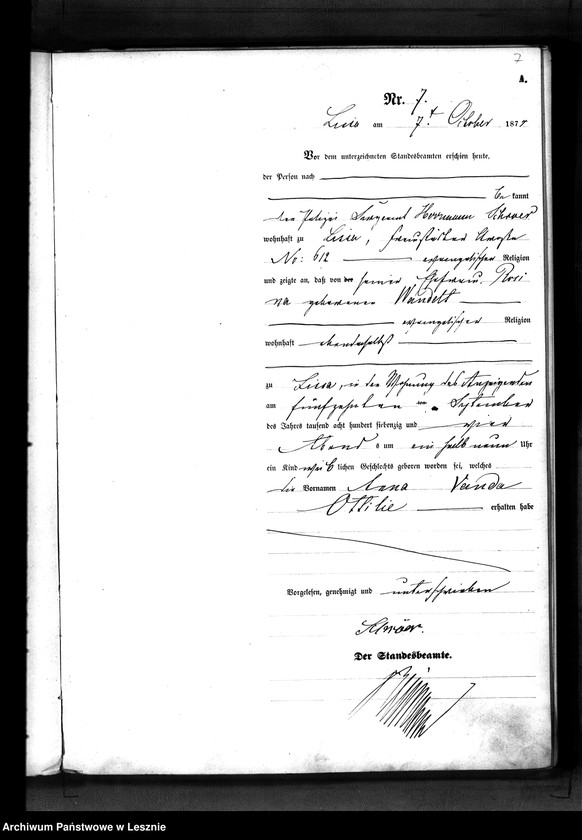 7
A.
Nr. 7.
Lissa am 7t October 1874
Vor dem unterzeichneten Standesbeamten erschien heute,
der Person nach
bekannt
der Polizei Sergeant Herrmann Schroer
wohnhaft zu Lissa, Fraustädter Straße
No: 612 evangelischer Religion
und zeigte an, daß von der seiner Ehefrau, Rosi
na geborenen Wandelt
evangelischer Religion
wohnhaft ebendaselbst
zu Lissa, in der Wohnung des Anzeigenden
am fünfzehnten September
des Jahres tausend acht hundert siebenzig und vier
Abends um ein halb neun Uhr
ein Kind weiblichen Geschlechts geboren worden sei, welches
die Vornamen Anna Vanda
Ottilie erhalten habe
Vorgelesen, genehmigt und unterschrieben
Schröer.
Der Standesbeamte.
Archiwum Państwowe w Lesznie